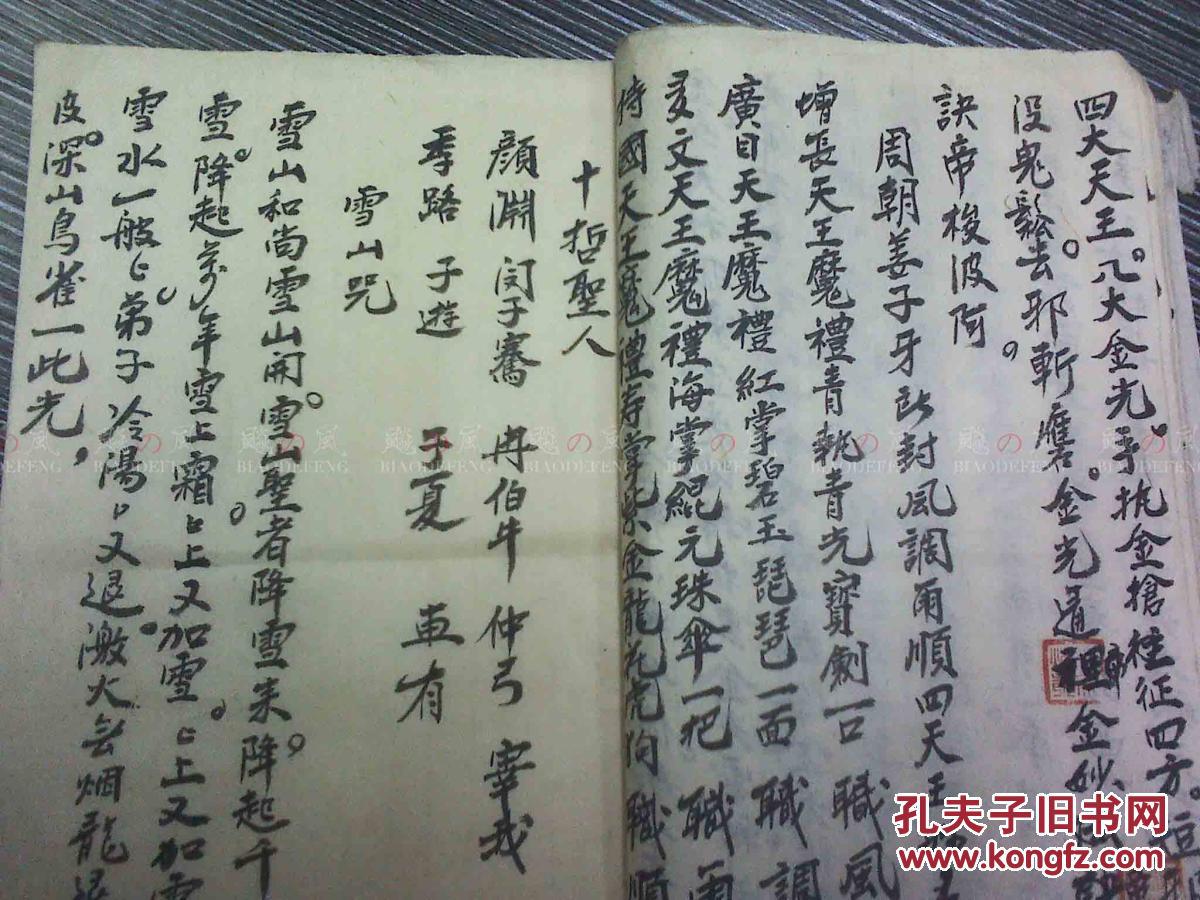 四大天王。八大金光。手执金搶往征四方。
没鬼鬆去。邪斬應。金光道裡金妙
訣帝梭波阿
周朝姜子牙敕封風調雨順四天王
增長天王魔禮青執青光寶劍一口 職風
廣目天王魔禮紅掌碧玉琵琶一面 職調
多文天王魔禮海掌緄元珠傘一把 職雨
侍國天王魔禮壽掌紫金龍花虎狗 職順
十哲聖人
顏淵 闵子騫 冉伯牛 仲弓 宰我
季路 子遊 子夏 冉有
雪山咒
雪山和尚雪山開。雪山聖者降雪来。降起千
雪。降起萬年雪上霜。〻上又加雪。〻上又加雪
雪水一般〻。弟子冷湯〻又退激火無烟龍退
皮。深山鳥雀一此光，
飚の風
BIAODEFENG
飚の風
BIAODEFENG
飚の風
BIAODEFENG
飚の風
BIAODEFENG
孔夫子旧书网
www.kongfz.com